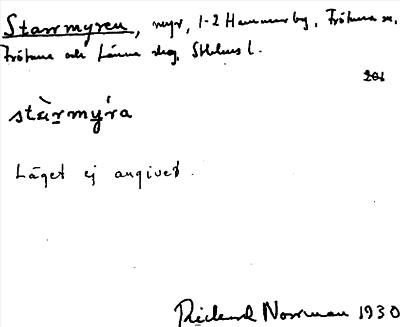 Starrmyren, myr, 1-2 Hammarby, Frötuna sn,
Frötuna och Länna skg, Sthlms l.
201
stàrmy̆́ra
Läget ej angivet.
Rickard Norrman 1930